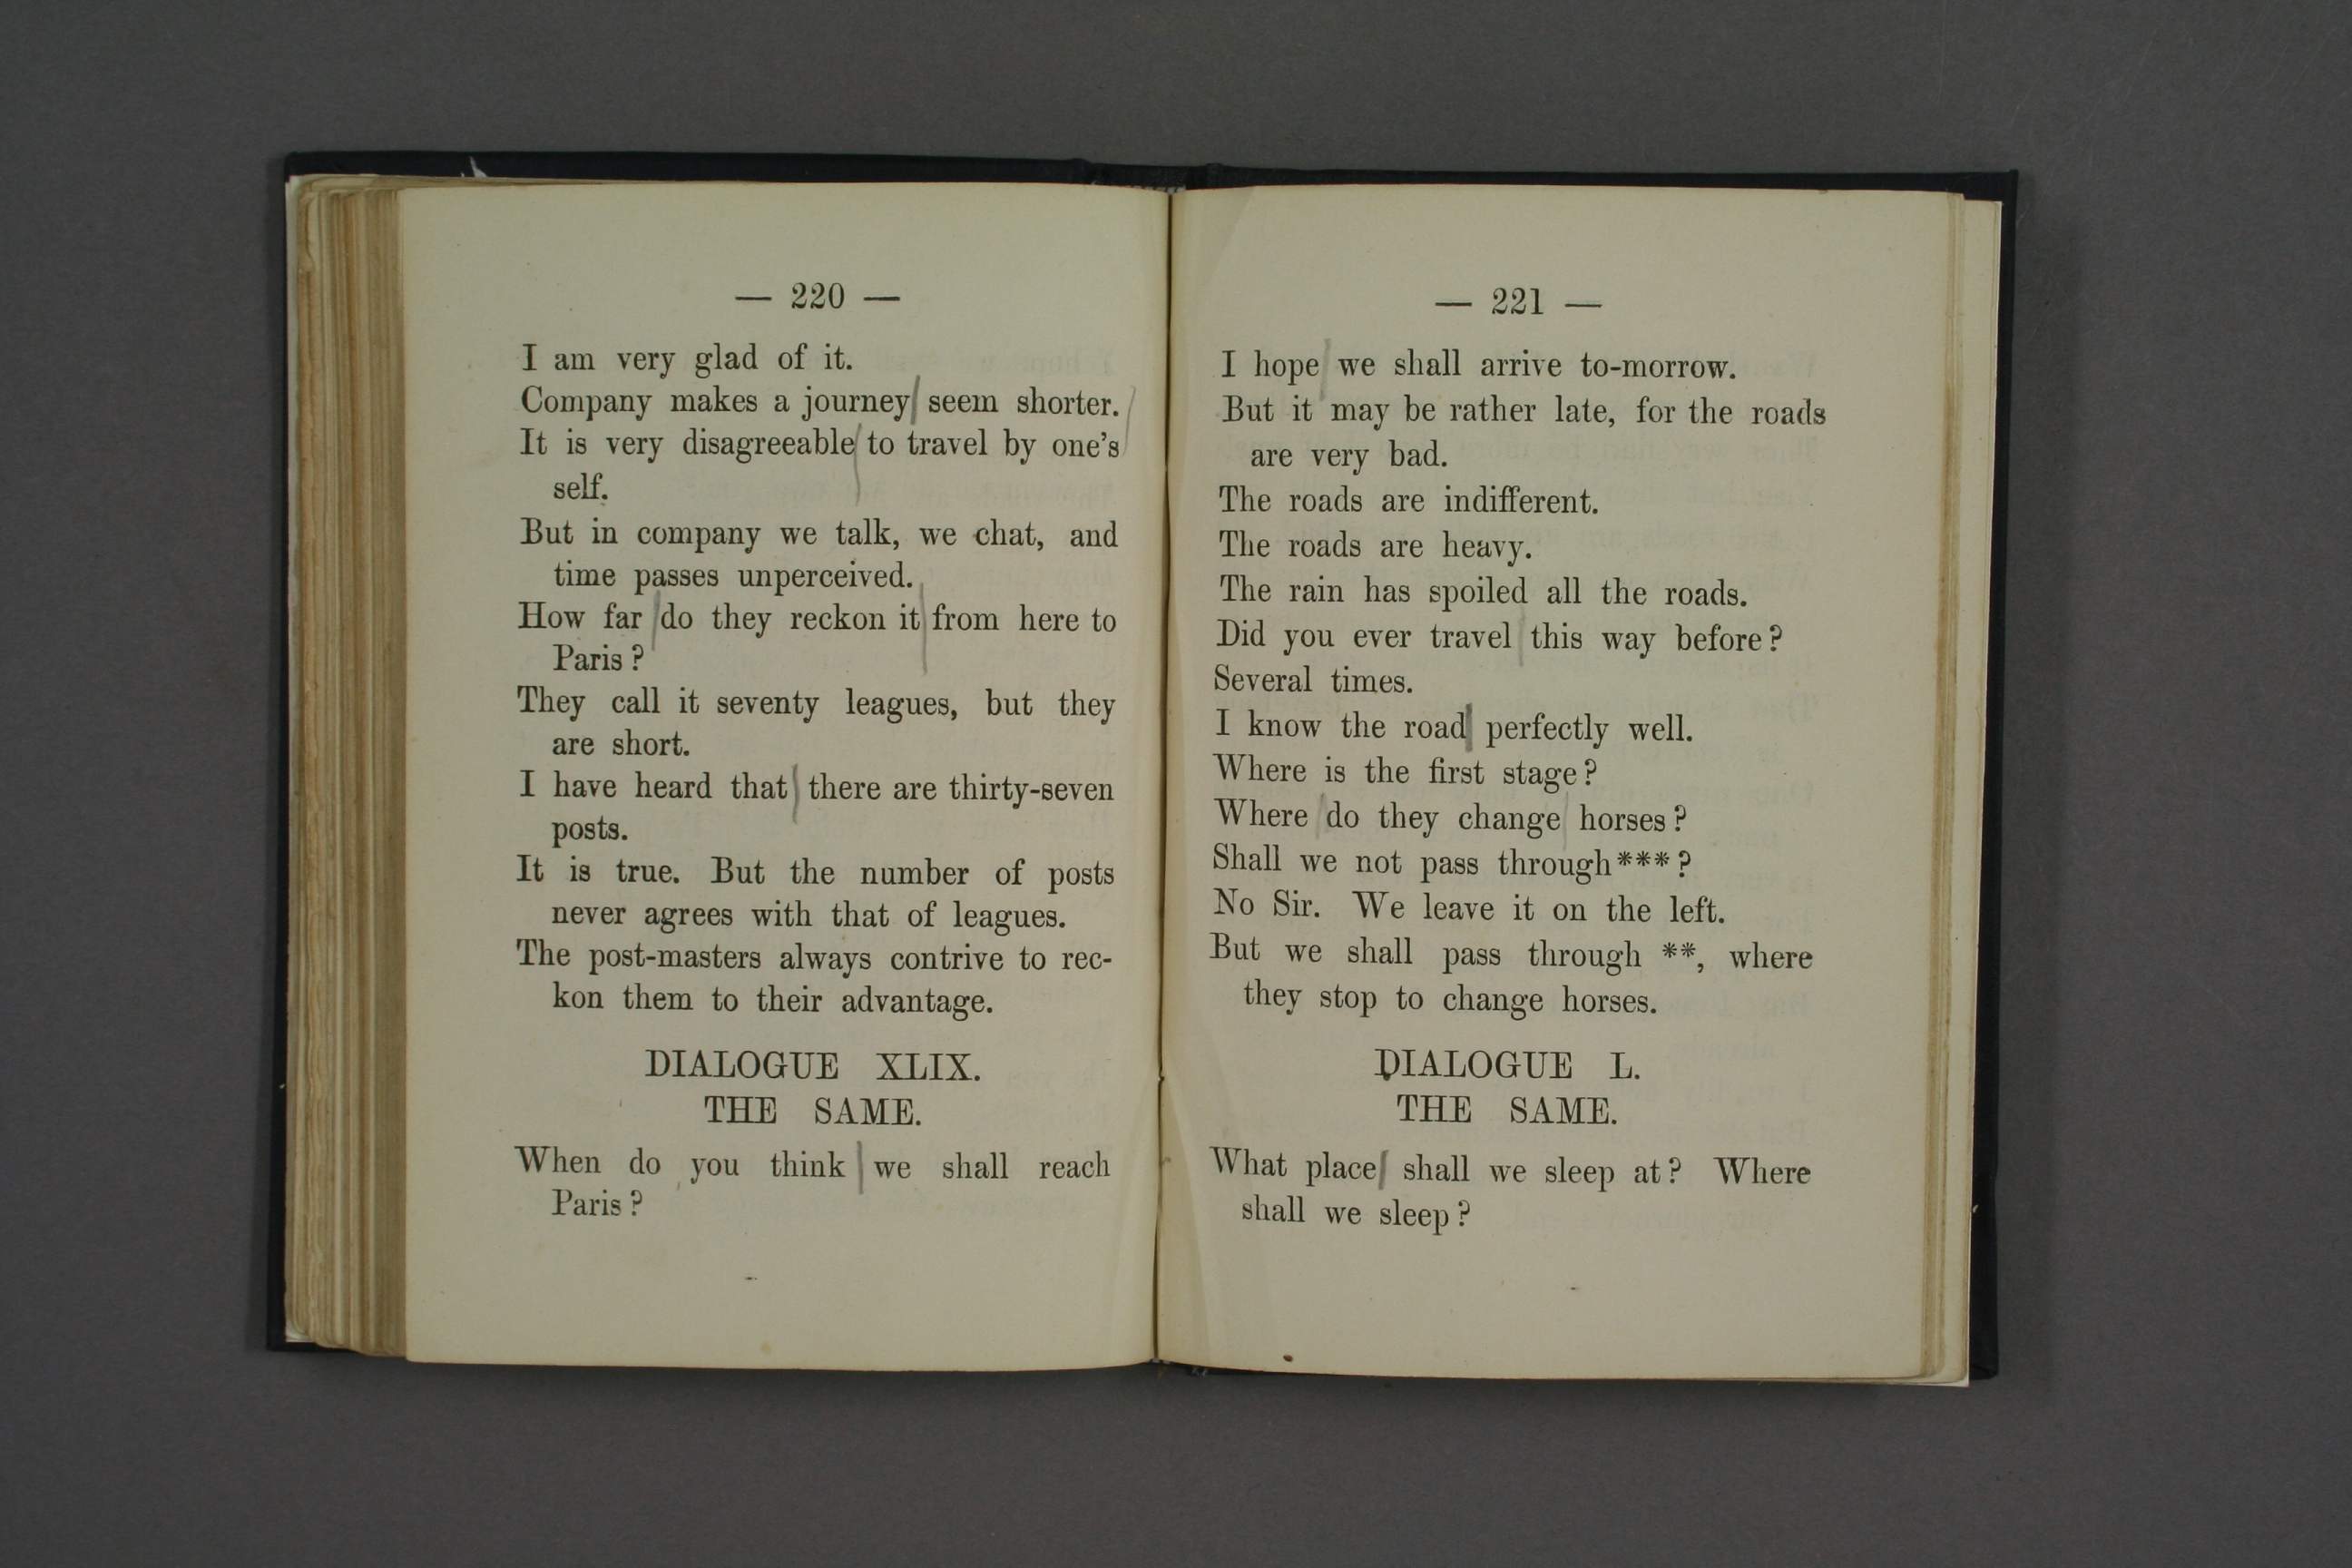 — 220 —
I am very glad of it.
Company makes a journey seem shorter.
It is very disagreeable to travel by one's
self.
But in company we talk, we chat, and
time passes unperceived.
How far do they reckon it from here to
Paris?
They call it seventy leagues, but they
are short.
I have heard that there are thirty-seven
posts.
It is true. But the number of posts
never agrees with that of leagues.
The post-masters always contrive to rec-
kon them to their advantage.
DIALOGUE XLIX.
THE SAME.
When do you think we shall reach
Paris?
— 221 —
I hope we shall arrive to-morrow.
But it may be rather late, for the roads
are very bad.
The roads are indifferent.
The roads are heavy.
The rain has spoiled all the roads.
Did you ever travel this way before?
Several times.
I know the road perfectly well.
Where is the first stage?
Where do they change horses?
Shall we not pass through***?
No Sir. We leave it on the left.
But we shall pass through **, where
they stop to change horses.
DIALOGUE L.
THE SAME.
What place shall we sleep at? Where
shall we sleep?